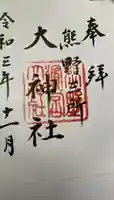 奉拝
熊野三所
大神社
令和三年十一月